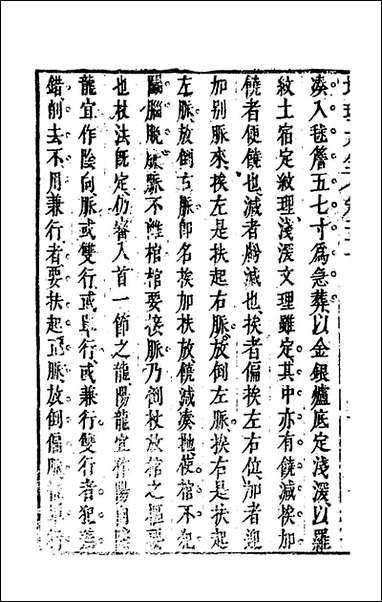 湊入毬簷五七寸為急葬以金銀爐底定淺深以羅
紋土宿定紋理淺深文理雖定其中亦有饒減挨加
饒者便饒也減者勝減也挨者偏挨左右位加者迎
加別脈來挨左是扶起右脈放倒左脈挨右是扶起
左脈放倒右脈即名挨加扶放饒減湊拋使棺不犯
腦脫脈不離棺棺要接脈乃倒杖放棺之樞要
也杖法既定仍審入首一節之龍陽龍宜作陽向陰
龍宜作陰向脈或雙行或單行或兼行雙行者犯差
錯削去不用兼行者要扶起正脈放倒偏脈單行